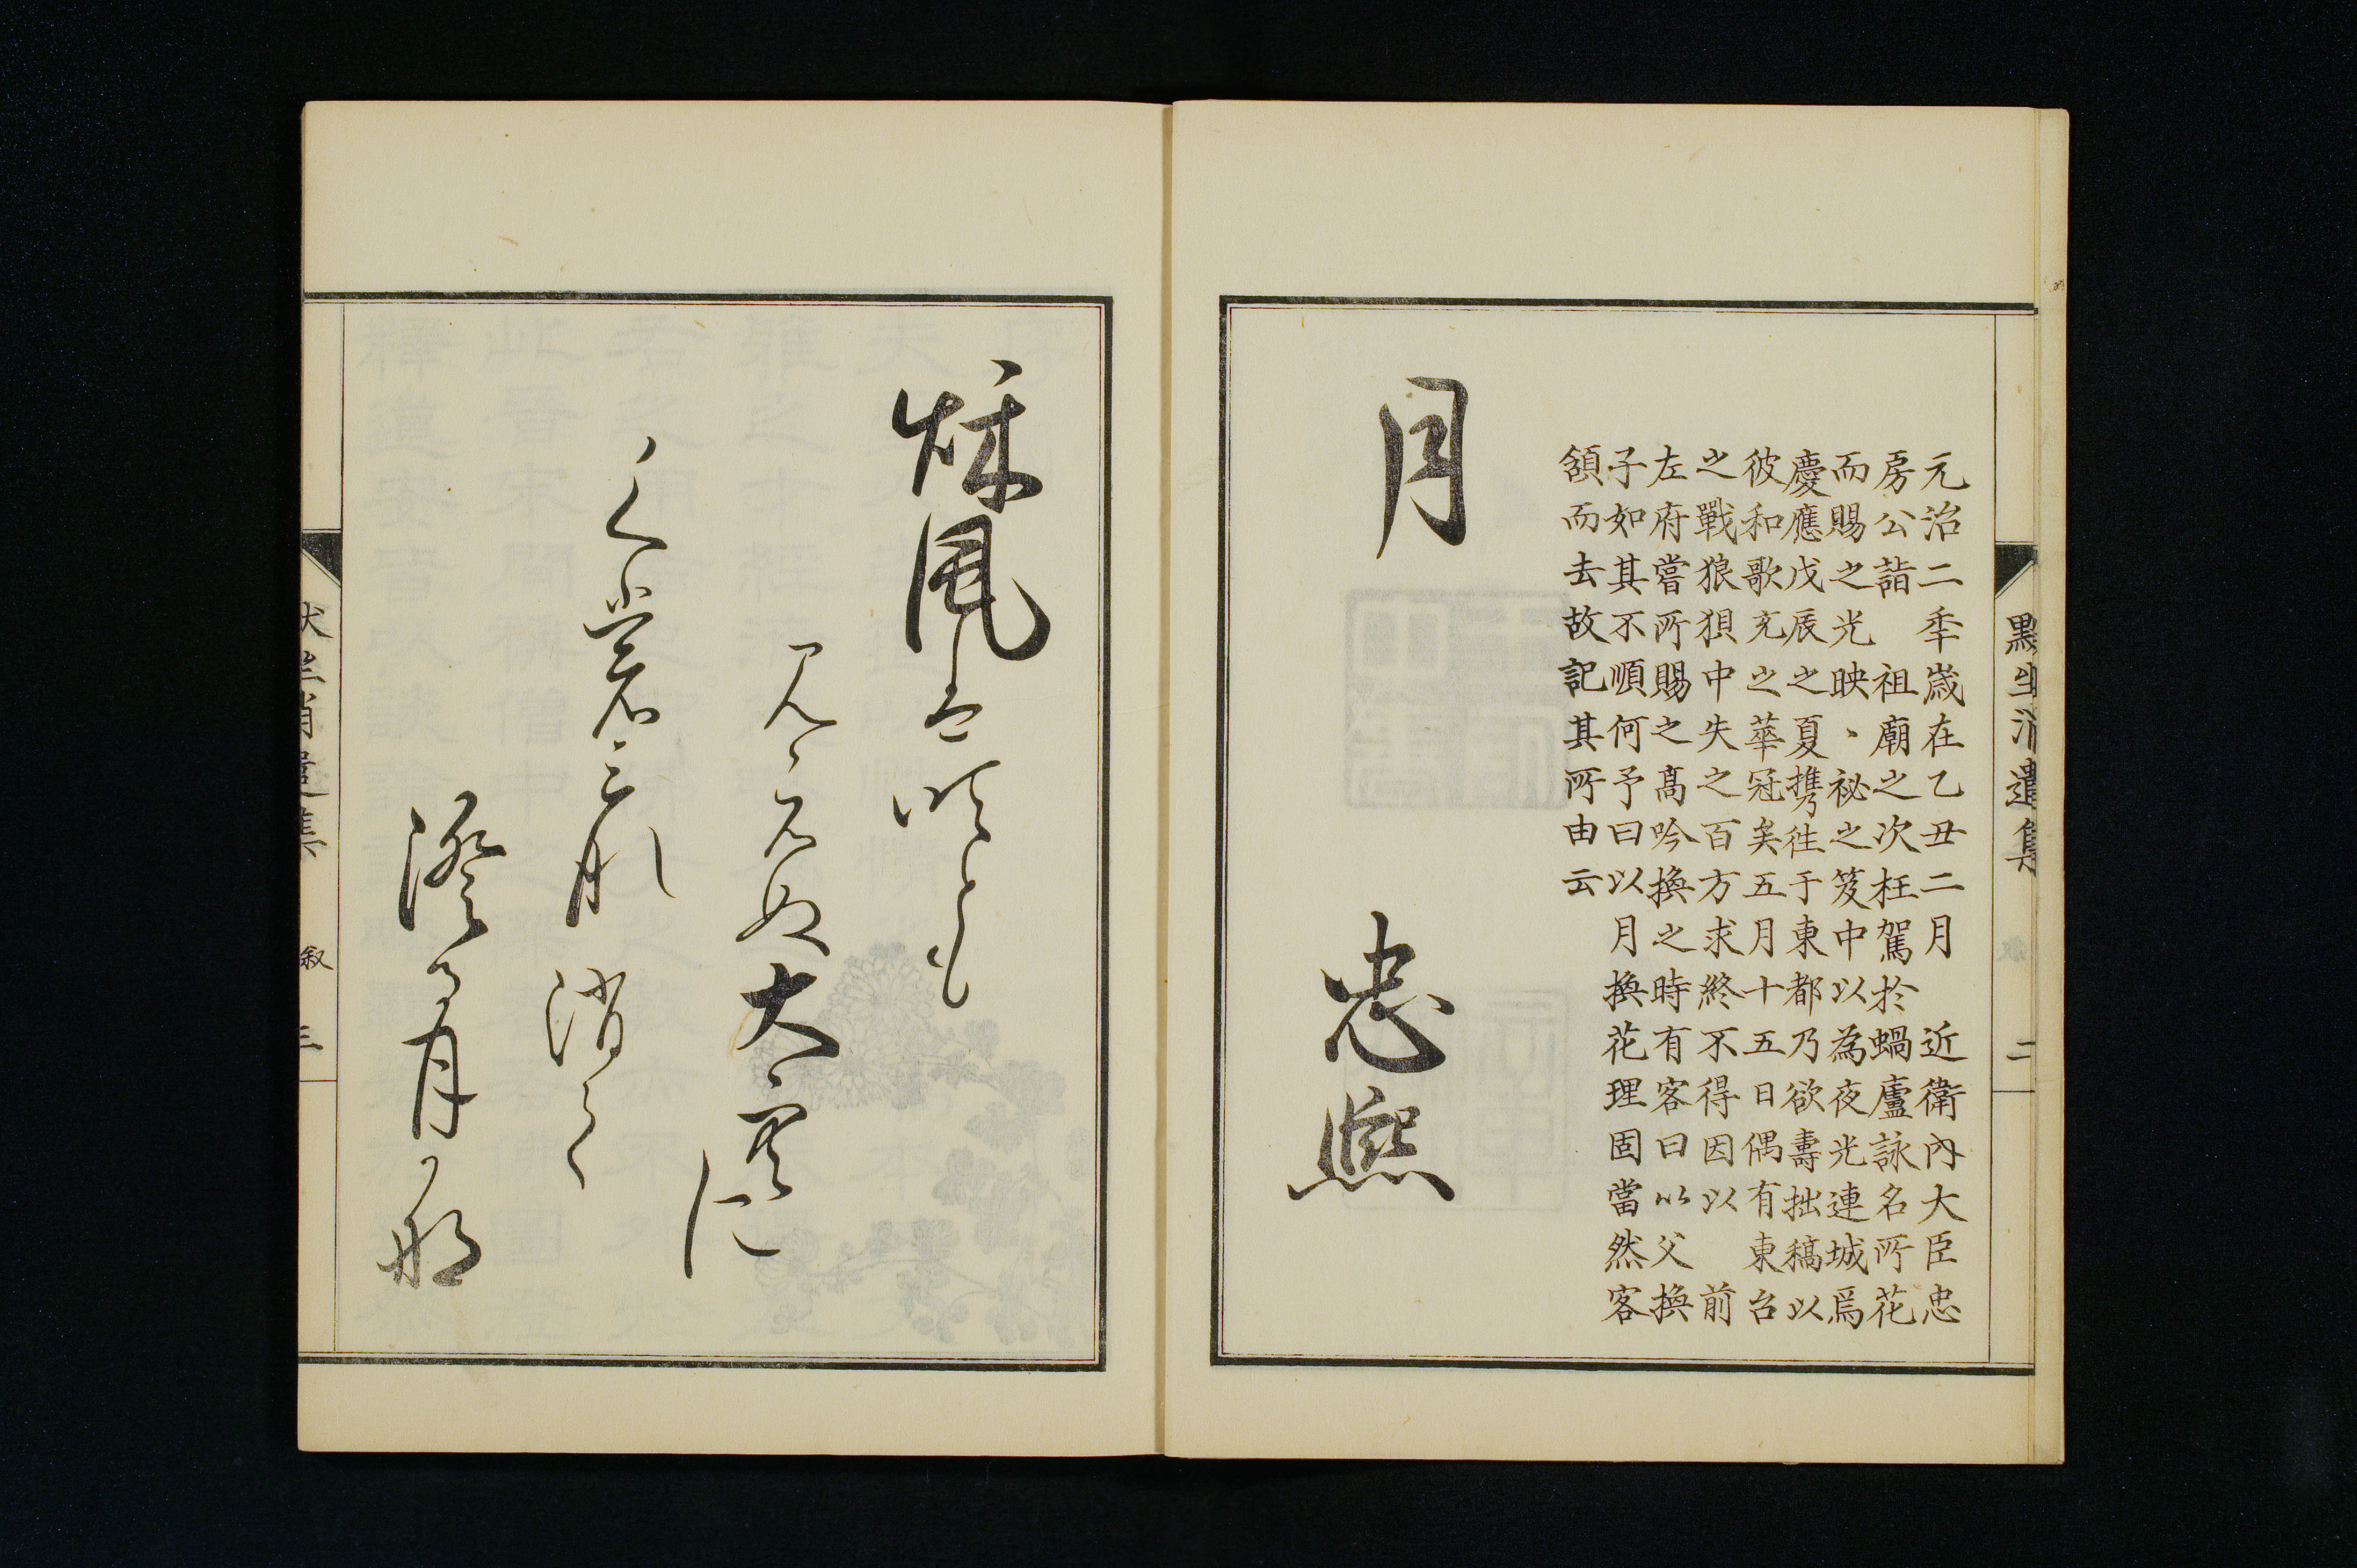 消遣集
二
元治二季歳在乙丑二月　近衛内大臣忠
房公詣　祖廟之次枉駕於蝸廬詠名所花
而賜之光映〻祕之笈中以為夜光連城焉
慶應戊辰之夏携徃于東都乃欲壽拙稿以
彼和歌充之華冠矣五月十五日偶有東台
之戰狼狽中失之百方求終不得因以　前
左府嘗所賜之髙吟換之時有客曰以父換
子如其不順何予曰以月換花理固當然客
頷而去故記其所由云
月　忠熈
秌風は吹とも
見えぬ大空に
く裳者三那消て
澄る月可那
叙
三